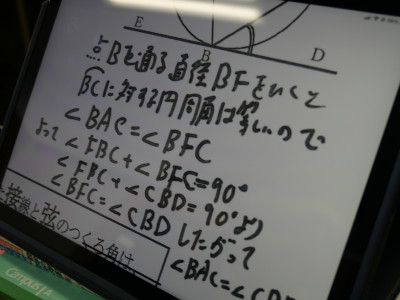 E B D
点Bを通る直径BFをひくと
BCに対する円周角は等しいので
∠BAC=∠BFC
よって ∠FBC+∠BFC=90°
∠FBC+∠CBD=90°より
∠BFC=∠CBD したがって
∠BAC=∠CD
接線と弦のつくる角は
Campus